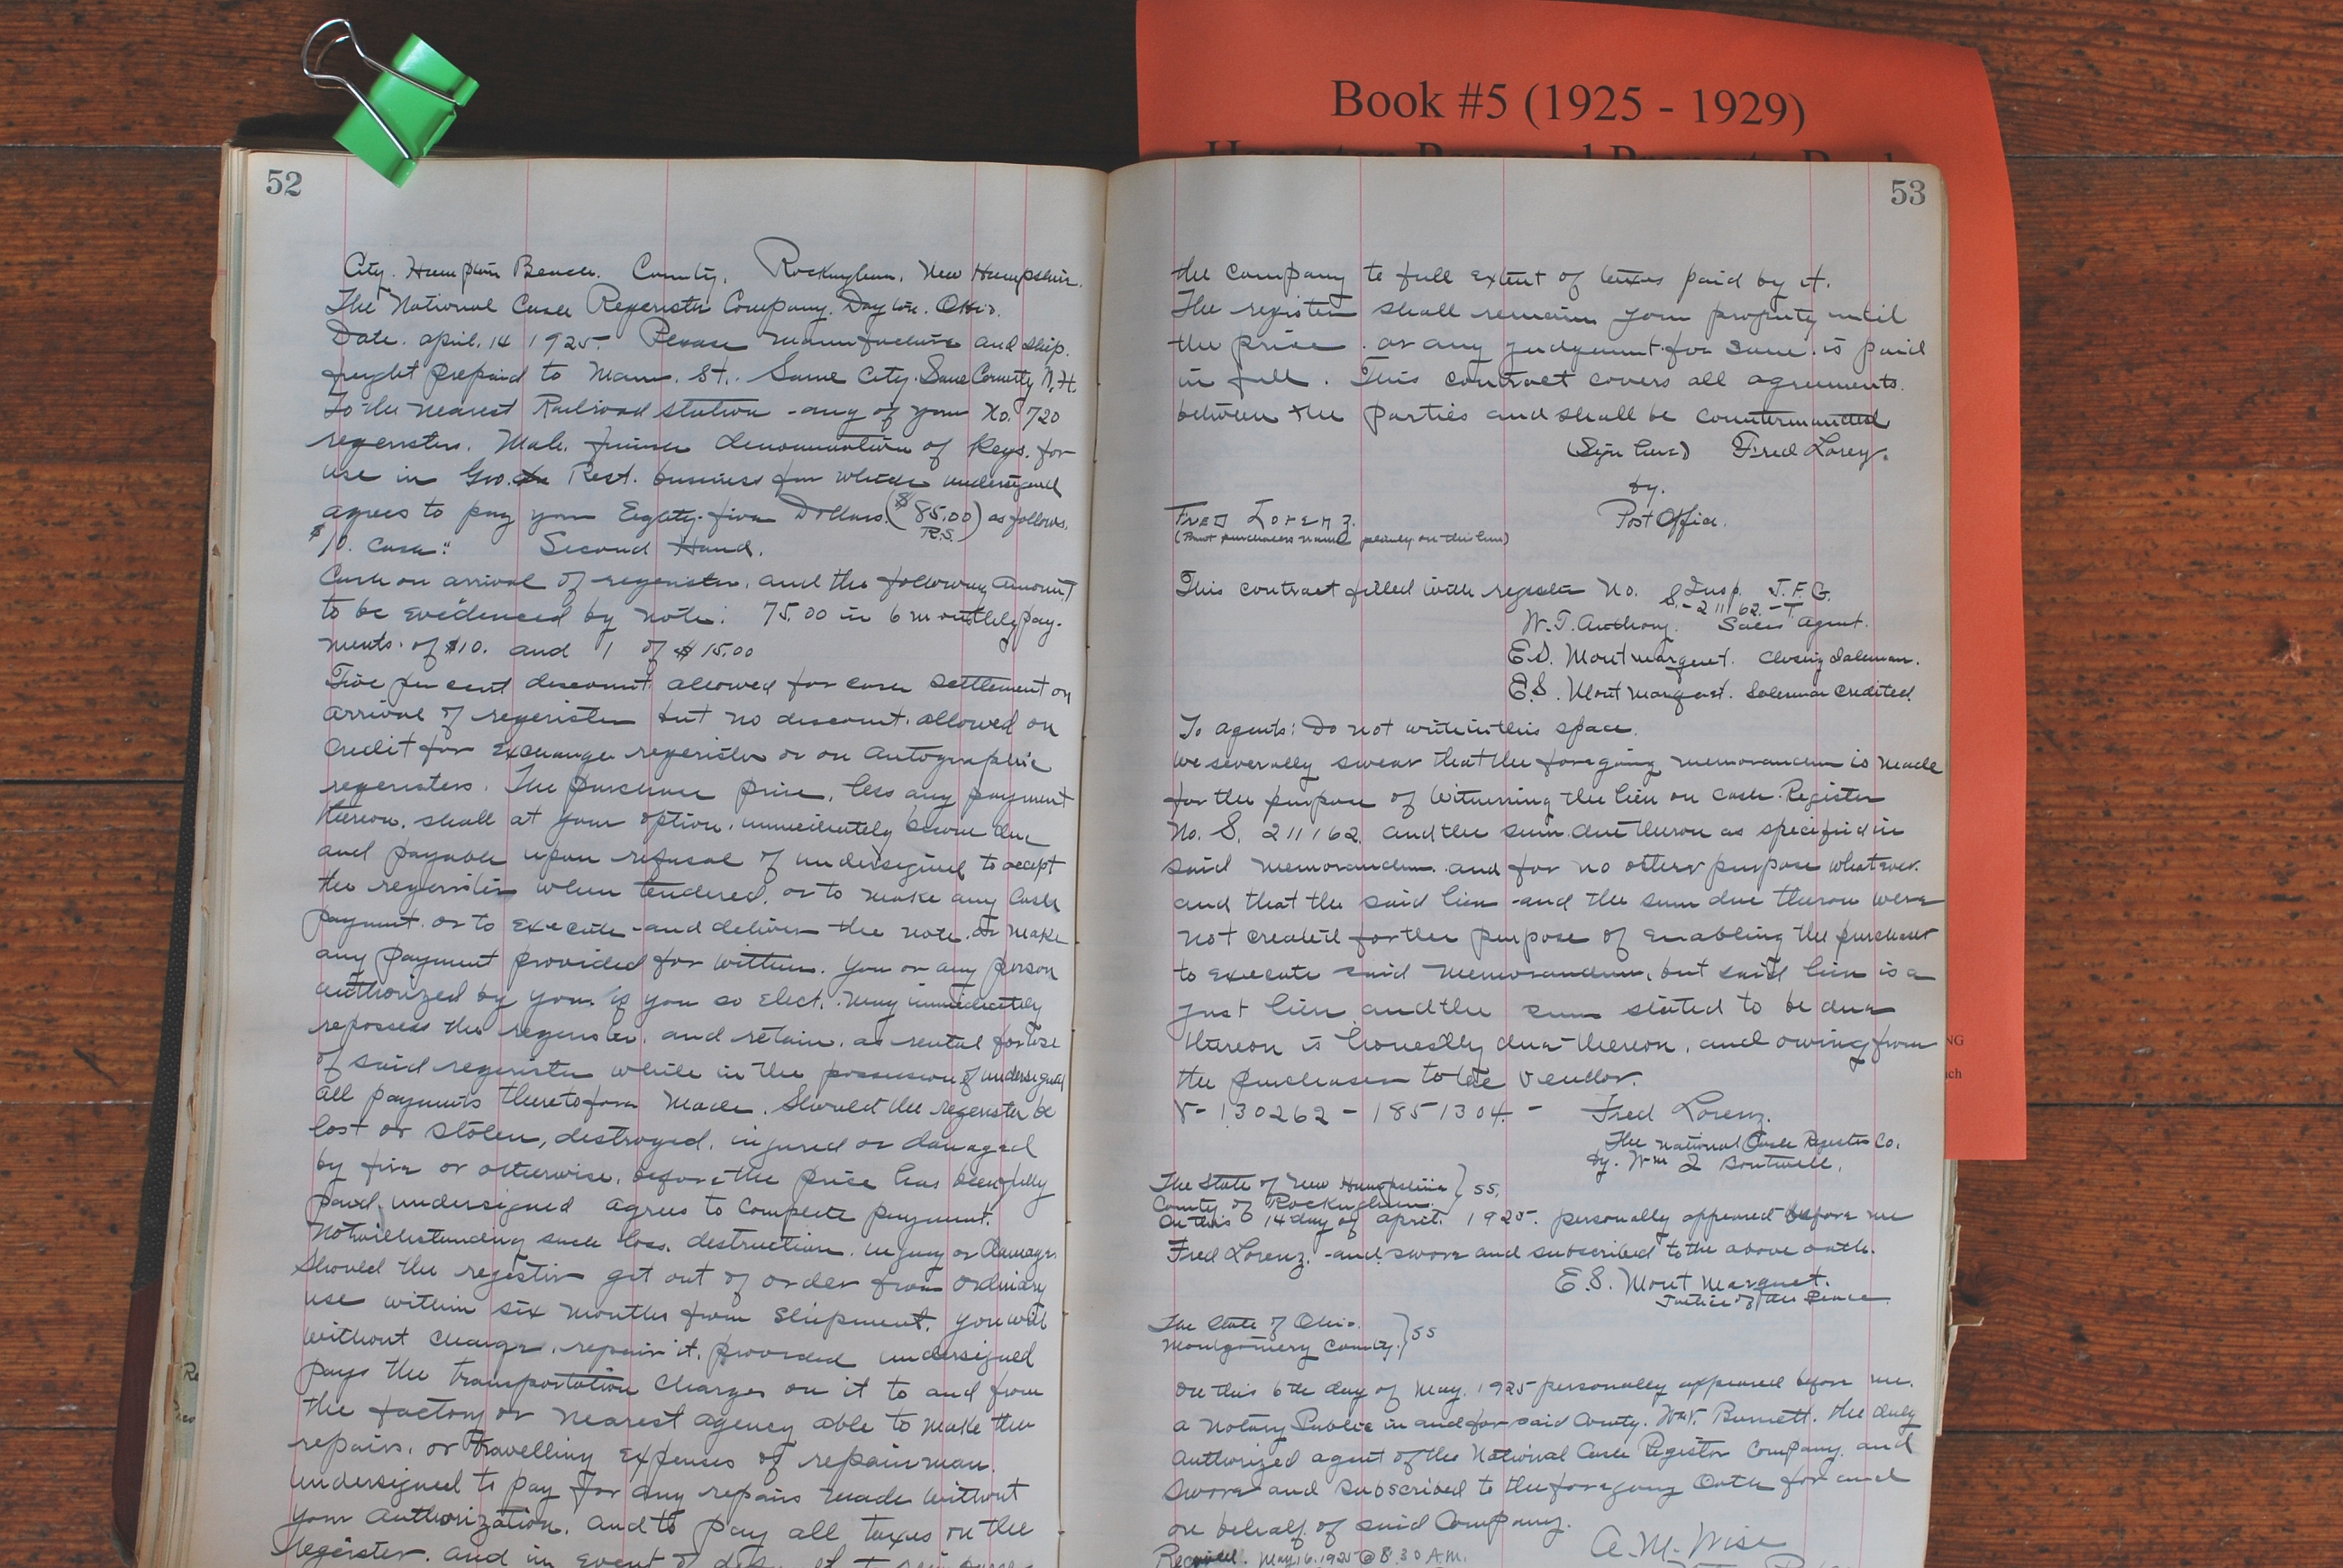 Book #5 (1925 - 1929)
52
City. Hampton Beach. County. Rockingham. New Hampshire.
The National Cash Regerister Company. Dayton. Ohio.
Date. april. 14 1925. Please manufacture and ship.
freight prepaid to Main. St. Same City. Same County N.H.
To the nearest Railroad station - any of your No. 720
regeristers. denomination of Keys. for
use in Gro. Rest. business for which undersigned
agrees to pay you Eighty-five Dollars. ($85.00) as follows.
R.S.
$10. Cash: Second Hand.
Cash on arrival of regerister. and the following amount
to be evidenced by note: 75.00 in 6 monthly pay-
ments. of $10. and 1 of $15.00
Five per cent discount allowed for cash settlement on
arrival of regerister but no discount. allowed on
credit for exchange regerister or on autographic
regeristers. The purchase price, less any payment
thereon. shall at your option, immediately become due
and payable upon refusal of undersigned to accept
the regerister when tendered, or to make any cash
payment. or to execute and deliver the note. or make
any payment provided for within. You or any person
authorized by you. if you so elect. may immediately
repossess the regerister. and retain. as rental for use
of said regerister while in the possession of undersigned
all payments theretofore made. Should the regerister be
lost or stolen, destroyed. injured or damaged
by fire or otherwise. before the price has been fully
paid. undersigned agrees to complete payment.
Notwithstanding such loss. destruction. injury or damage.
Should the register get out of order from ordinary
use within six months from shipment. you will
without charge. repair it. provided undersigned
pays the transportation charges on it to and from
the factory or nearest agency able to make the
repairs. or travelling expenses of repairman.
undersigned to pay for any repairs made without
your authorization. and to pay all taxes on the
Regerister. and in event of
53
the company to full extent of taxes paid by it.
The register shall remain your property until
the price. or any judgement for same. is paid
in full. This contract covers all agreements.
between the parties and shall be countermanded
(Sign here) Fred Lorey.
by.
Post Office.
FRED Lorenz.
(Print purchasers name plainly on this line)
This contract filled with register No. Insp. J.F.G.
S.-211162.-T
W.T. Anthony. Sales Agent.
E.S. Mont marquet. Closing Salesman.
E.S. Mont marquet. Salesman Credited.
To agents: Do not write in this space.
We severally swear that the foregoing memorandum is made
for the purpose of witnessing the lien on cash-Register
No. S. 211162. and the sum due thereon as specified in
said memorandum. and for no other purpose whatever.
and that the said lien and the sum due thereon were
not created for the purpose of enabling the purchaser
to execute said memorandum, but said lien is a
just lien and the sum stated to be due
thereon is honestly due thereon, and owing from
the purchaser to the vendor.
V-130262-1851304.- Fred Lorenz.
The National Cash Register Co.
by. Wm
The State of New Hampshire } SS.
County of Rockingham.
On this 14 day of April. 1925. personally appeared before me
Fred Lorenz. and swore and subscribed to the above oath.
E.S. Mont Marquet.
Justice of the Peace.
The State of Ohio. } SS
Montgomery County.
On this 6th day of May. 1925 personally appeared before me.
a Notary Public in and for said County. Burnett. the duly
authorized agent of the National Cash Register Company. and
swore and subscribed to the foregoing Oath for and
on behalf of said Company.
A.M. Wise
Received. May. 16. 1925 @ 8.30 A.M.